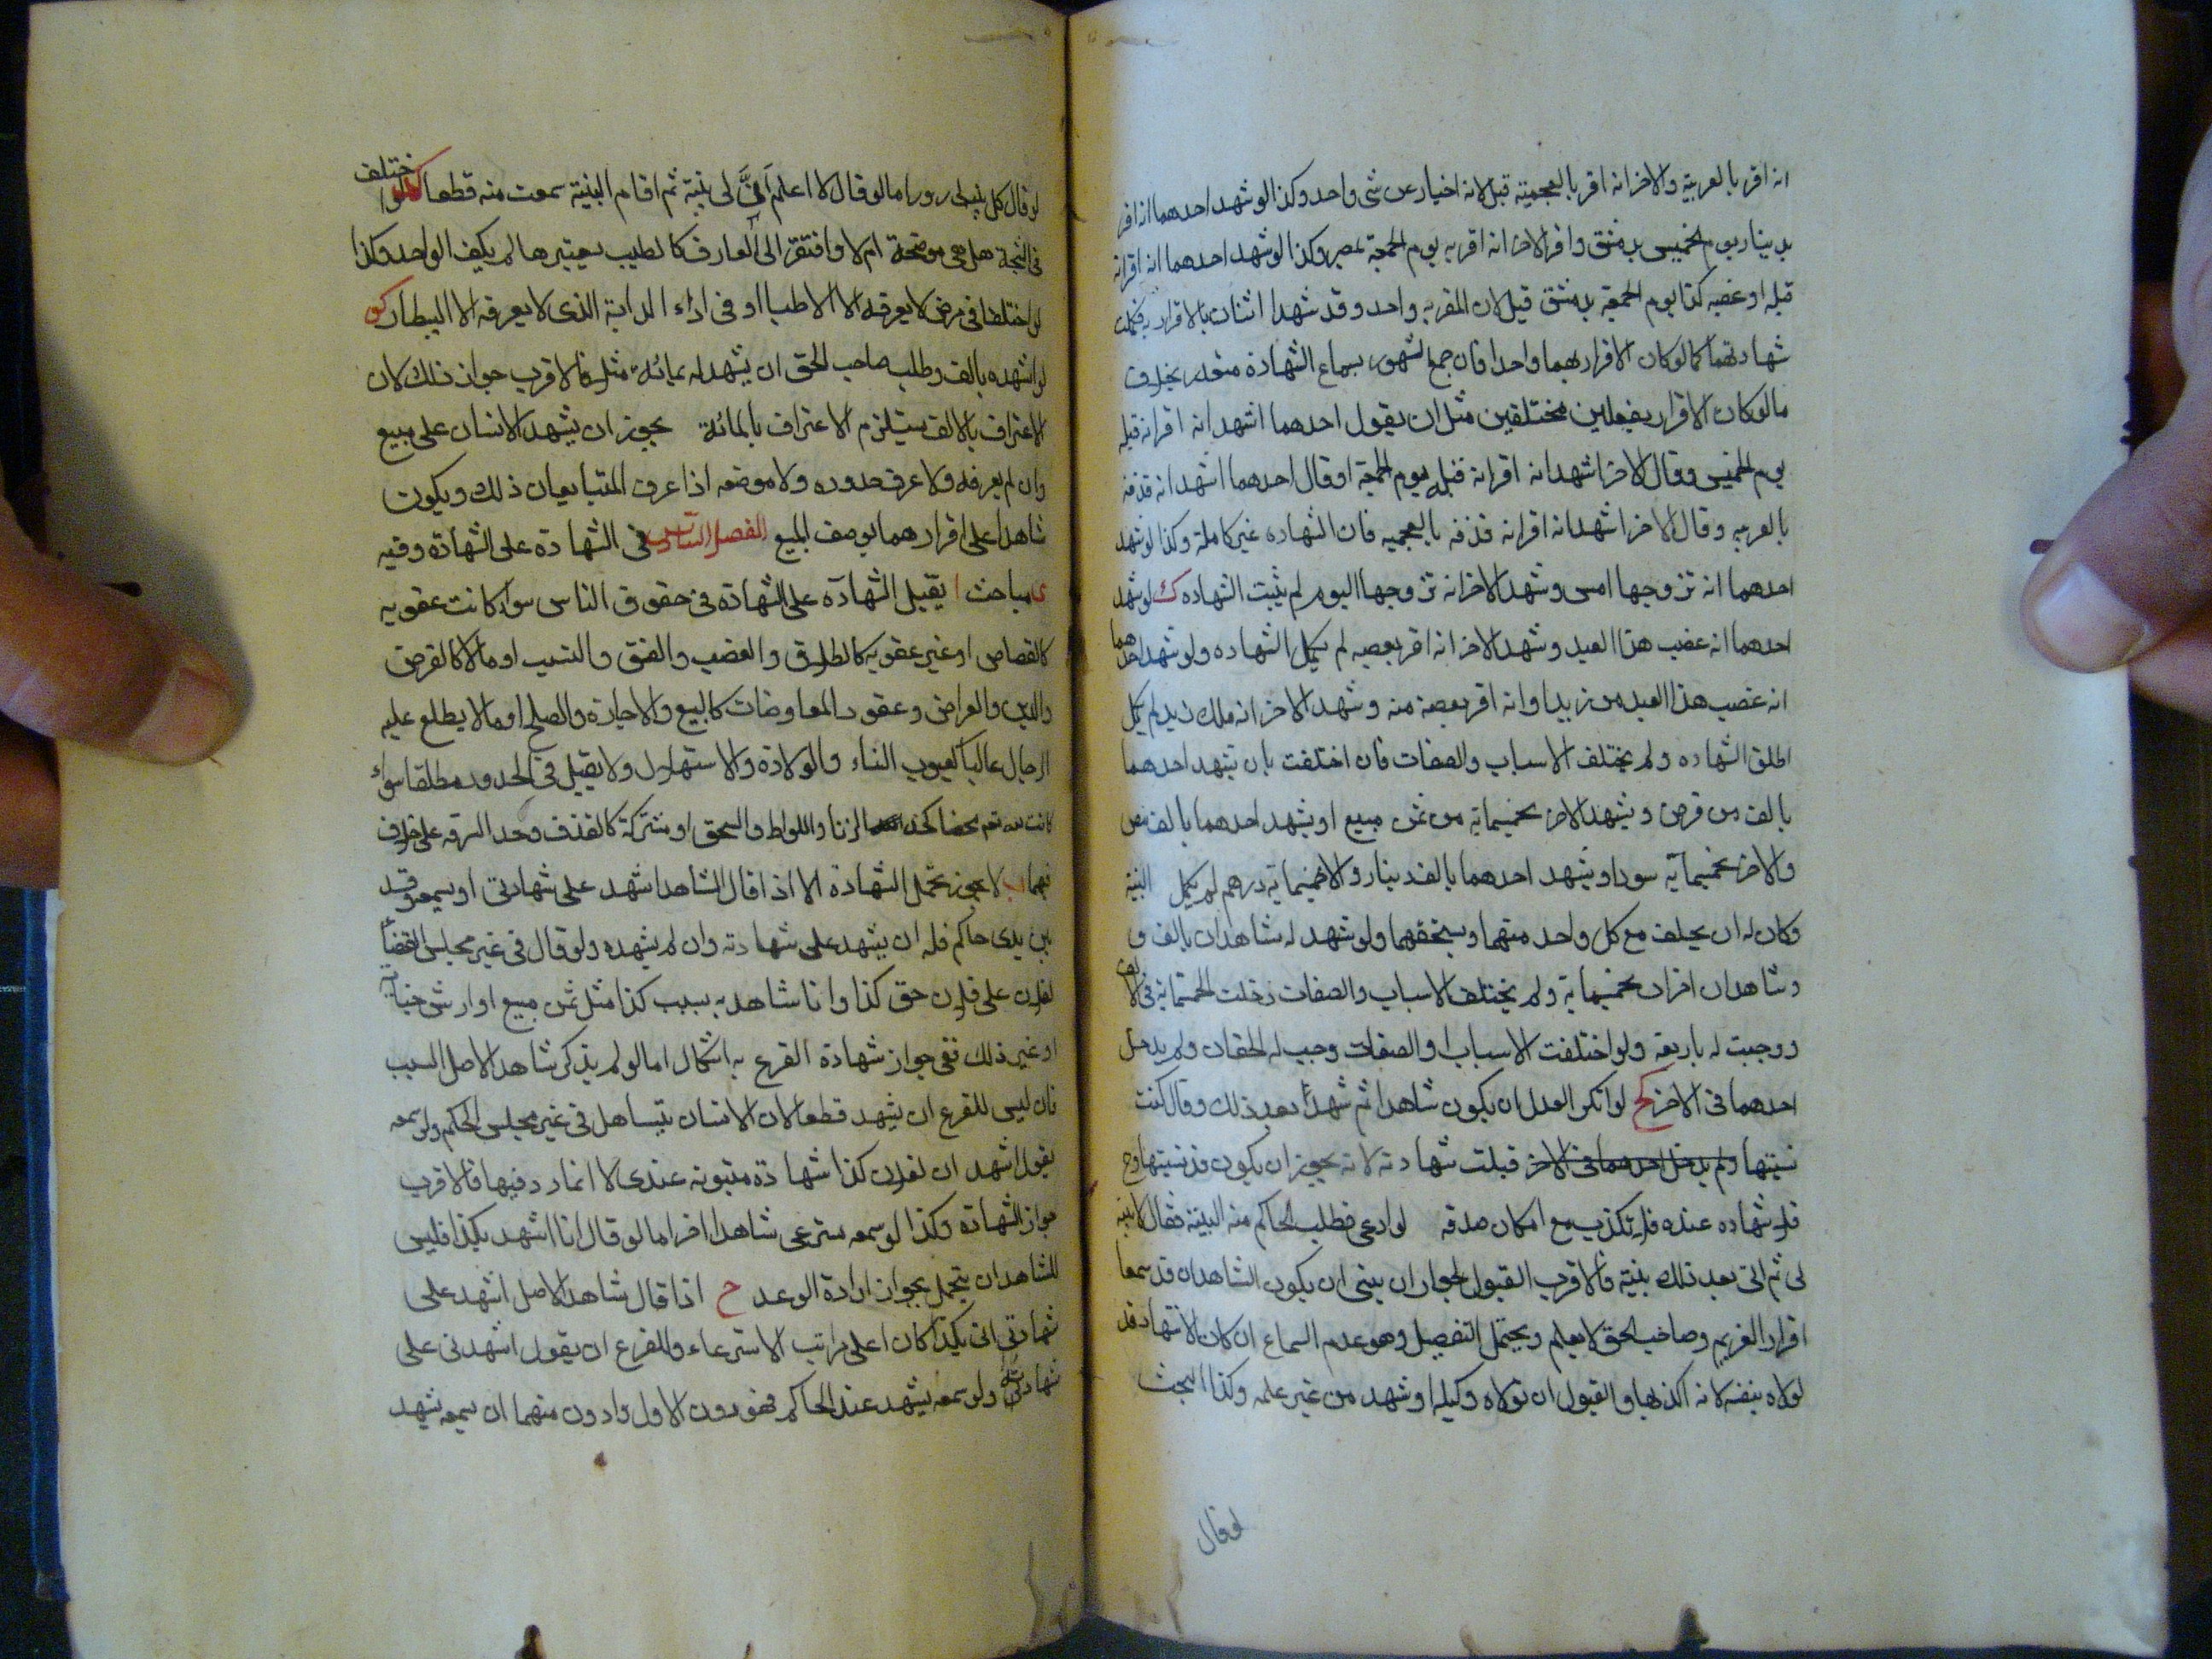 انه اقر بالعربية والاخر انه اقر بالعجمية قبل لانه اخبار عن شى واحد وكذا لو شهد احدهما انه اقر
بدينار يوم الخميس بدمشق واقر الاخر انه اقر به يوم الجمعة بمصر وكذا لو شهد احدهما انه اقر انه
قتله او غصبه كذا يوم الجمعة بدمشق قبل لان المقر به واحد وقد شهدا اثنان بالاقرار به فكملت
شهادتهما كما لو كان الاقرار بهما واحدا فان جمع الشهود بسماع الشهادة متعذر بخلاف
ما لو كان الاقرار بفعلين مختلفين مثل ان يقول احدهما اشهد انه اقر انه قتله
يوم الخميس وقال الاخر اشهد انه اقر انه قتله يوم الجمعة او قال احدهما اشهد انه قذفه
بالعربيه وقال الاخر اشهد انه اقر انه قذفه بالعجميه فان الشهاده غير كاملة وكذا لو شهد
احدهما انه تزوجها امس وشهد الاخر انه تزوجها اليوم لم يثبت الشهاده ك لو شهد
احدهما انه غصب هذا العبد وشهد الاخر انه اقر بغصبه لم تكمل الشهاده ولو شهد احدهما
انه غصب هذا العبد من زيد او انه اقر بغصبه منه وشهد الاخر انه ملك زيد لم تكمل
اطلق الشهاده ولم يختلف الاسباب والصفات فان اختلفت بان يشهد احدهما
بالف من قرض ويشهد الاخر بخمسمائة من ثمن مبيع او يشهد احدهما بالف بيض
والاخر بخمسمائة سود او يشهد احدهما بالف دينار والاخر بخمسمائة درهم لم تكمل البينة
وكان له ان يحلف مع كل واحد منهما ويستحقهما ولو شهد له شاهدان بالف و
وشاهدان اخران بخمسمائة ولم يختلف الاسباب والصفات دخلت الخمسمائة فى الالف
ووجبت له باربعة ولو اختلفت الاسباب او الصفات وجب له الحقان ولم يدخل
احدهما فى الاخر كج لو انكر العدل ان يكون شاهدا ثم شهد بعد ذلك وقال كنت
نسيتها ولم يدخل احدهما فى الاخر قبلت شهادته لانه يجوز ان يكون قد نسيتها وح
فلا شهاده عنده فلا تكذب مع امكان صدقه لو ادعى فطلب الحاكم منه البينة فقال لا بينة
لى ثم اتى بعد ذلك بنية فالاقرب القبول لجواز ان ينسى او يكون الشاهدان قد سمعا
اقرار الغريم وصاحب الحق لا يعلم ويحتمل التفصيل وهو عدم السماع ان كان الاشهاد قد
تولاه بنفسه لانه اكذبها والقبول ان تولاه وكيله او شهد من غير علمه وكذا البحث
لو قال
لو قال كل بينة لى زور اما لو قال لا اعلم ان لى بينة ثم اقام البينة سمعت منه قطعا لو اختلف
فى الشجة هل هى موضحة ام لا وافتقر الى العارف كالطبيب يعتبرها لم يكف الواحد وكذا
لو اختلفا فى مرض لا يعرفه الا الاطبا او فى داء الدابة الذى لا يعرفه الا البيطار كو
لو اشهده بالف وطلب صاحب الحق ان يشهد له بمائة مثلا فالاقرب جواز ذلك لان
الاعتراف بالالف يستلزم الاعتراف بالمائة يجوز ان يشهد الانسان على مبيع
وان لم يعرفه ولا عرف حدوده ولا موضعه اذا عرف المتبايعان ذلك ويكون
شاهدا على اقرارهما بوصف المبيع الفصل السادس فى الشهادة على الشهادة وفيه
ى مباحث ا يقبل الشهادة على الشهادة فى حقوق الناس سواء كانت عقوبه
كالقصاص او غير عقوبه كالطلاق والغصب والعتق والنسب او مالا كالقرض
والدين والقراض وعقود المعاوضات كالبيع والاجارة والصلح او ما لا يطلع عليه
الرجال غالبا كعيوب النساء والولادة والاستهلال ولا يقبل فى الحدود مطلقا سواء
كانت لله تعم محضا كحد الزنا واللواط والسحق او مشتركة كالقذف وحد السرقه على خلاف
فيهما ب لا يجوز تحمل الشهادة الا اذا قال الشاهد اشهد على شهادتى او سمعه وقد
بين يدى حاكم فله ان يشهد على شهادته وان لم يشهده ولو قال فى غير مجلس القضاء
لفلان على فلان حق كذا وانا شاهد به بسبب كذا مثل ثمن مبيع او ارش جناية
او غير ذلك ففى جواز شهادة الفرع به اشكال اما لو لم يذكر شاهد الاصل السبب
فان ليس للفرع ان يشهد قطعا لان الانسان يتساهل فى غير مجلس الحاكم ولو سمعه
يقول اشهد ان لفلان كذا شهادة مثبوته عندى لا اتمارد فيها فالاقرب
جواز الشهادة وكذا لو سمعه يسترعى شاهدا اخر اما لو قال انا اشهد بكذا فليس
للشاهد ان يتحمل بجواز ارادة الوعد ح اذا قال شاهد الاصل اشهد على
شهادتى انى بكذا كان اعلى مراتب الاسترعاء وللفرع ان يقول اشهدنى على
شهادته ولو سمعه يشهد عند الحاكم فهو دون الاول وادون منهما ان يسمعه يشهد